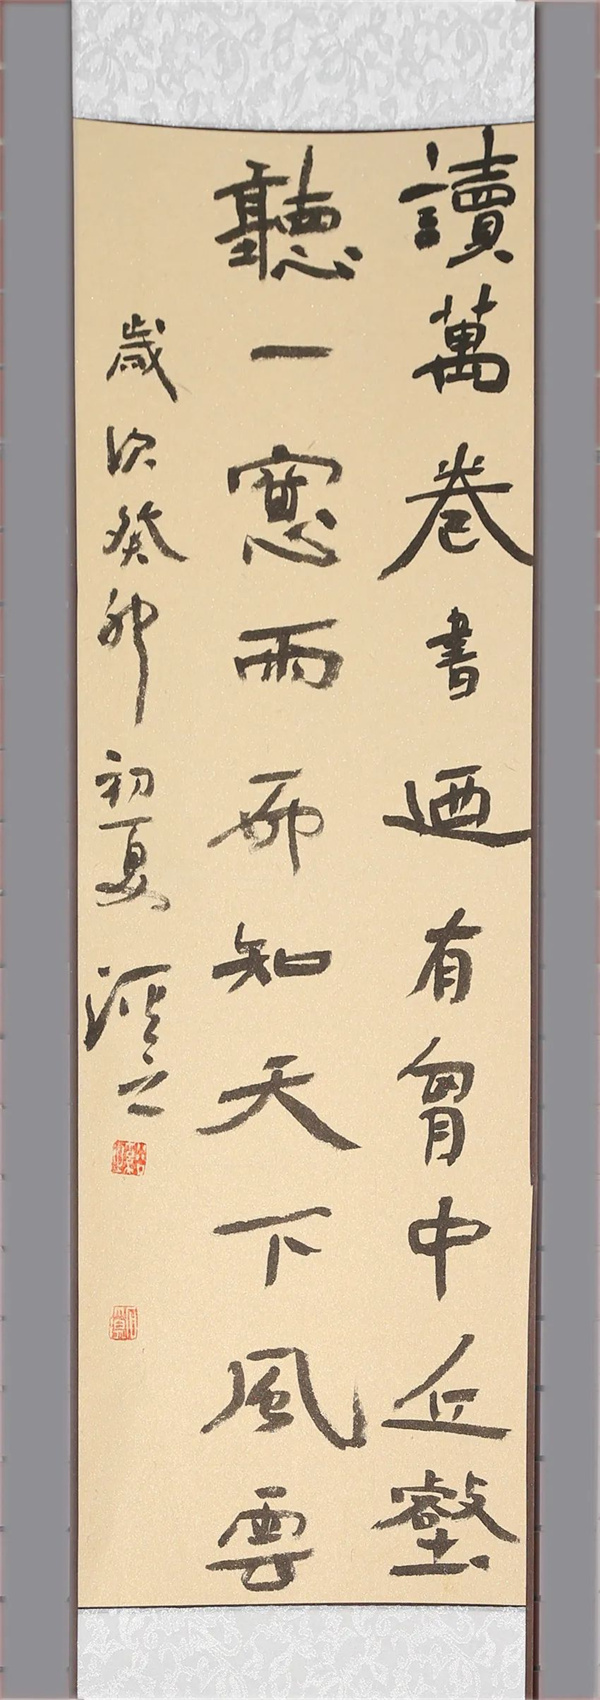 讀萬卷書迺有胷中丘壑
聽一窻雨那知天下風雲
歲次癸卯初夏